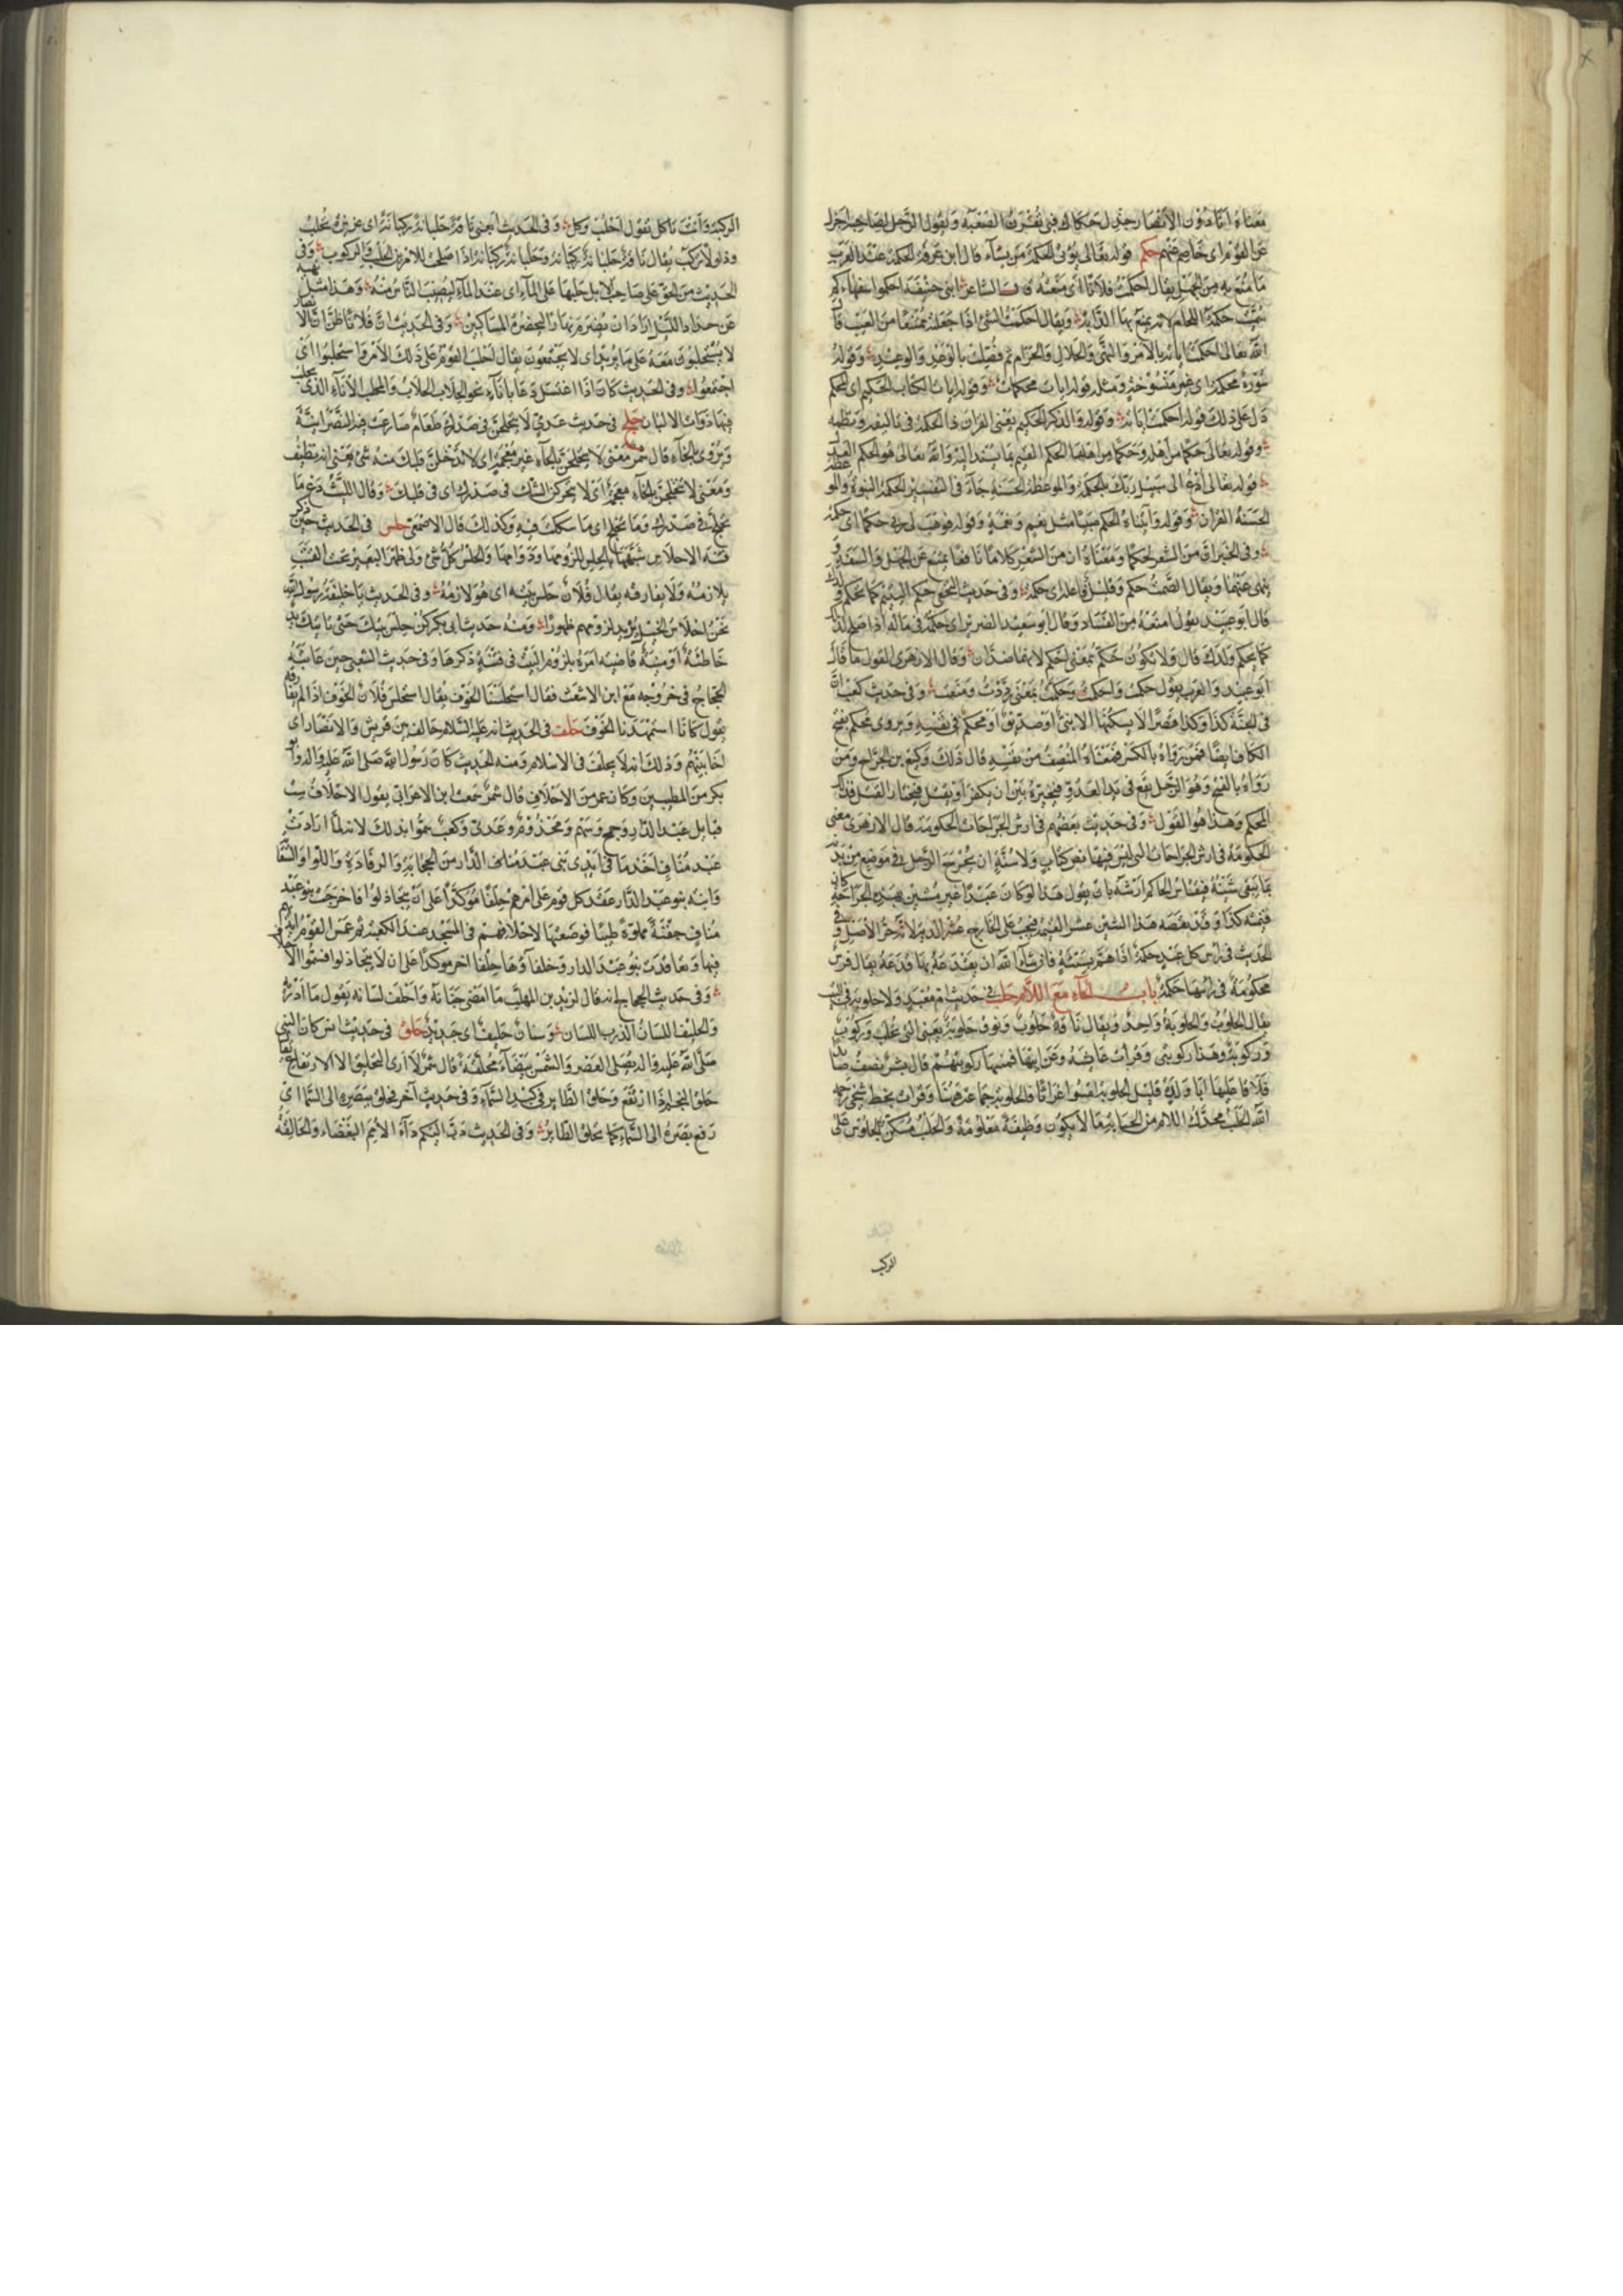 معناه انا دون الانصار جذل حكاك لي تقرن الصعبة ويقول الرجل لصاحبه اجذل
عن القوم اي خاصم عنهم حكم قوله تعالى يؤتي الحكمة من يشاء قال ابن عرفة الحكمة عند العرب
ما منع به من الجهل يقال احكمت فلانا اي منعته قال الشاعر ابني حنيفة احكموا سفهاءكم
حكمة اللجام لانه يمنع بها الدابة ويقال احكمت الشئ اذا جعلته ممتنعا من العيب
الله تعالى احكمت اياته بالامر والنهي والحلال والحرام ثم فصلت بالوعد والوعيد وقوله
سورة محكمة اي غير منسوخة ومثله قوله ايات محكمات وقوله ايات الكتاب الحكيم اي المحكم
دل على ذلك قوله احكمت اياته وقوله والذكر الحكيم يعني القران ذا الحكمة في تاليفه ونظمه
وقوله تعالى حكما من اهله وحكما من اهلها الحكم القيم بما يسند اليه والله تعالى هو الحكم
قوله تعالى ادع الى سبيل ربك بالحكمة والموعظة الحسنة جاء في التفسير الحكمة النبوة والموعظة
الحسنة القران وقوله وآتيناه الحكم صبيا مثل نعم ونعمة وقوله فوهب لي ربي حكما اي حكمة
وفي الخبر ان من الشعر لحكما ومعناه ان من الشعر كلاما نافعا يمنع عن الجهل والسفه و
ينهى عنهما ويقال الصمت حكم وقليل فاعله اي حكمة وفي حديث النخعي حكم اليتيم كما تحكم ولدك
قال ابو عبيد يقول امنعه من الفساد وقال ابو سعيد الضرير اي حكمه في ماله اذا صلح لذلك
كما يحكم ولدك قال ولا يكون حكم بمعنى احكم لانهما ضدان وقال الازهري القول ما قال
ابو عبيد والعرب يقول حكمت واحكمت وحكمت بمعنى رددت ومنعت وفي حديث كعب ان
في الجنة كذا وكذا قصرا لا يسكنها الا نبي او صديق او محكم في نفسه ويروى محكم بفتح
الكاف ايضا فمن رواه بالكسر فمعناه المنصف من نفسه قال ذلك وكيع بن الجراح ومن
رواه بالفتح وهو الرجل يقع في يد العدو فيخيره بين ان يكفر او يقتل فيختار القتل فذلك
المحكم وهذا هو القول وفي حديث بعضهم في ارش الجراحات الحكومة قال الازهري معنى
الحكومة في ارش الجراحات التي ليس فيها نص كتاب ولا سنة ان يجرح الرجل في موضع من بدنه
بما يبقى شينه فيقاس الحاكم ارشه بان يقول هذا لو كان عبدا غير مشين بهذه الجراحة كان
قيمته كذا وقد نقصه هذا الشين عشر القيمة فيجب على الجارح عشر الدية لانه حر الاصل وفي
الحديث في راس كل عبد حكمة اذا هم بسيئة فان شاء الله ان يقدعه بها قدعه يقال فرس
محكومة في راسها حكمة باب الحاء مع اللام حلب في حديث ام معبد ولا حلوبة في البيت
يقال الحلوب والحلوبة واحد ويقال ناقة حلوب ونوق حلوبة يعني التي تحلب وركوب
وركوبة وهذا ركوبتي وقرات عايشة وعن ابيها فمنها ركوبتهم قال بشر نصف
الله الحلب محرك اللام من الجباية مما لا يكون وظيفة معلومة والحلب مسكن الجلوس على
الركب
الركبة وانت تاكل يقول احلب وكل وفي الحديث ابغني ناقة حلبانة ركبانة اي غزيرة تحلب
وذلولا تركب يقال ناقة حلبانة ركبانة وحلباة ركباة اذا صلحت للامرين الحلب والركوب وفي
الحديث من الحق على صاحب الابل حلبها على الماء اي عند الماء ليصيب الناس منه وهذا مثل نهيه
عن جداد الليل اراد ان تصرم نهارا ليحضره المساكين وفي الحديث ان فلانا ظن ان الا
لا يستحلبون معه على ما يريد اي لا يجتمعون يقال احلب القوم على ذلك الامر واستحلبوا اي
اجتمعوا وفي الحديث كان اذا اغتسل دعا باناء نحو الحلاب الحلاب والمحلب الاناء الذي يحلب
فيها ذوات الالبان حلج في حديث عدي لا يتحلجن في صدرك طعام ضارعت فيه النصرانية
ويروى بالخاء قال شمر معنى لا يتحلجن بالحاء غير معجمة اي لا يدخلن قلبك منه شئ يعني انه نظيف
ومعنى لا تتخلجن بالخاء معجمة اي لا يتحركن الشك في صدرك اي في قلبك وقال الليث دع ما
تحلج في صدرك وما تخلج اي ما سككت فيه وكذلك قال الاصمعي حلس في الحديث حين ذكر
فتنة الاحلاس شبهها بالحلس للزومها ودوامها والحلس كل شئ ولي ظهر البعير تحت القتب
يلازمه ولا يفارقه يقال فلان حلس بيته اي هو لازمه وفي الحديث يا خليفة رسول الله
نحن احلاس الخيل يريد لزومهم ظهورها ومنه حديث ابي بكر كن حلس بيتك حتى تاتيك يد
خاطئة او منية قاضية امره بلزوم البيت في فتنة ذكرها وفي حديث الشعبي حين عاتبه
الحجاج في خروجه مع ابن الاشعث فقال استحلسنا الخوف يقال استحلس فلان الخوف اذا لم يفارقه
يقول كانا استمهدنا الخوف حلف في الحديث انه عليه السلام حالف بين قريش والانصار اي
اخا بينهم وذلك انه لا حلف في الاسلام ومنه الحديث كان رسول الله صلى الله عليه واله وابو
بكر من المطيبين وكان عمر من الاحلاف قال شمر سمعت ابن الاعرابي يقول الاحلاف ست
قبايل عبد الدار وجمح وسهم ومخزوم وعدي وكعب سموا بذلك لانه لما ارادت بنو
عبد مناف اخذ ما في ايدي بني عبد الدار من الحجابة والرفادة واللواء والسقاية
وابت بنو عبد الدار عقد كل قوم على امرهم حلفا مؤكدا على ان لا يتخاذلوا فاخرجت بنو عبد
مناف جفنة مملوءة طيبا فوضعوها لاحلافهم في المسجد عند الكعبة ثم غمس القوم ايديهم
فيها وتعاقدت بنو عبد الدار وحلفاؤها حلفا اخر موكدا على ان لا يتخاذلوا فسموا الاحلاف
وفي حديث الحجاج انه قال ليزيد بن المهلب ما امضى جنانه واحلف لسانه يقول ما اذربه
والحليف اللسان الذرب اللسان وسنان حليف اي حديد حلق في حديث انس كان النبي
صلى الله عليه واله يصلي العصر والشمس بيضاء محلقة قال شمر لا ارى التحليق الا الارتفاع يقال
حلق النجم اذا ارتفع وحلق الطاير في كبد السماء وفي حديث آخر فحلق ببصره الى السماء اي
رفع بصره الى السماء كما يحلق الطاير وفي الحديث دب اليكم داء الامم البغضاء والحالقة